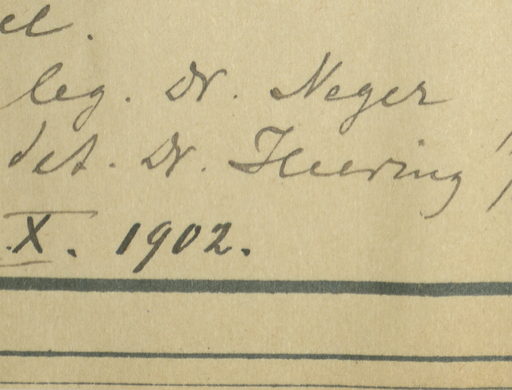 leg. Dr. Neger
det. Dr. Heering
X. 1902.